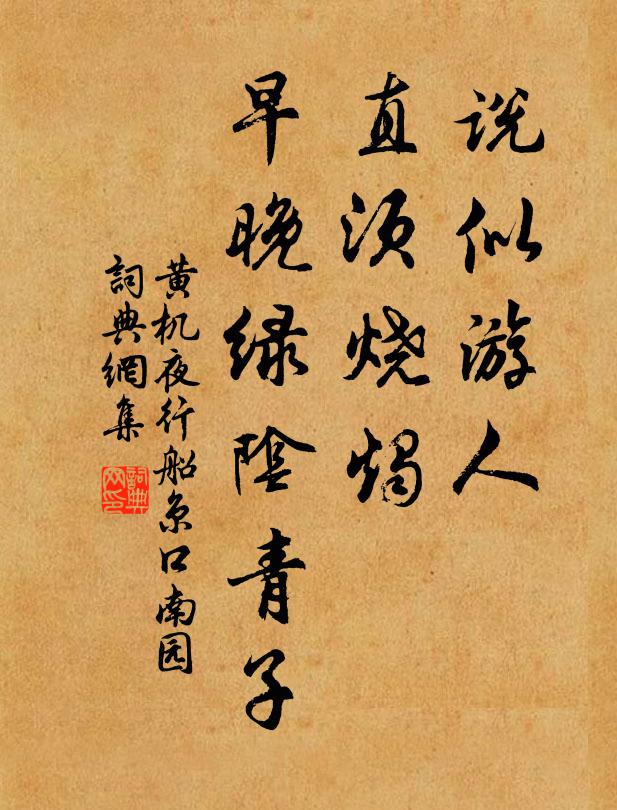 说似游人
直须烧烛
早晚绿阴青子
黄机夜行船京口南园
詞典網集
詞典
网印